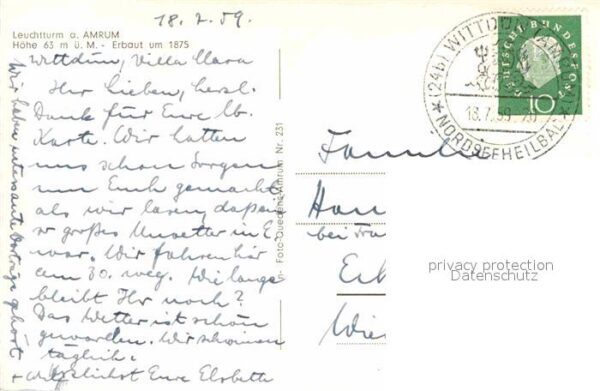 18.7.59.
Leuchtturm a. AMRUM
Höhe 63 m ü. M. - Erbaut um 1875
Wittdün, Villa Clara
Ihr Lieben, herzl.
Dank für Eure lb.
Karte. Wir hatten
uns schon Sorgen
um Euch gemacht
als wir lasen, daß am
so großes Unwetter in E
war. Wir fahren hier
am 30. weg. Wie lange
bleibt Ihr noch?
Das Wetter ist schön
geworden. Wir schwimmen
täglich.
Herzlichst Eure Elsbeth
Wir haben interessante Vorträge gehört
Foto-Quedens-Amrum Nr. 231
(24b) WITTDÜN AMRUM
18.7.59
NORDSEEHEILBAD
DEUTSCHE BUNDESPOST
10
Familie
Han
bei
Wie
privacy protection
Datenschutz